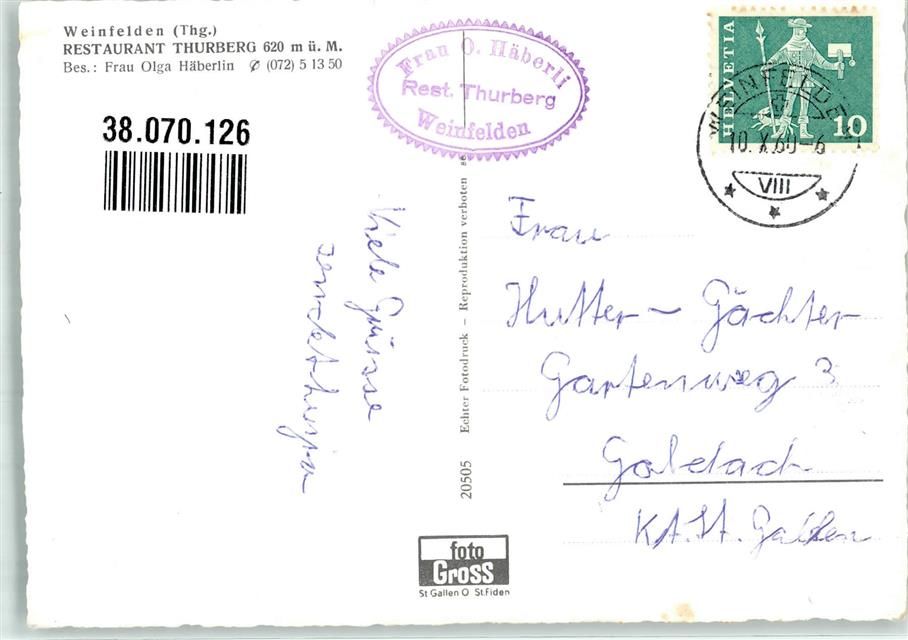 Weinfelden (Thg.)
RESTAURANT THURBERG 620 m ü. M.
Bes.: Frau Olga Häberlin ✆ (072) 5 13 50
38.070.126
Frau O. Häberli
Rest. Thurberg
Weinfelden
HELVETIA
10
WEINFELDEN
10.X.60-6
VIII
Viele Grüsse
sendet
Frau
Hutter - Gächter
Gartenweg 3
Goldach
Kt. St. Gallen
20505 Echter Fotodruck – Reproduktion verboten
foto
Gross
St Gallen O St.Fiden